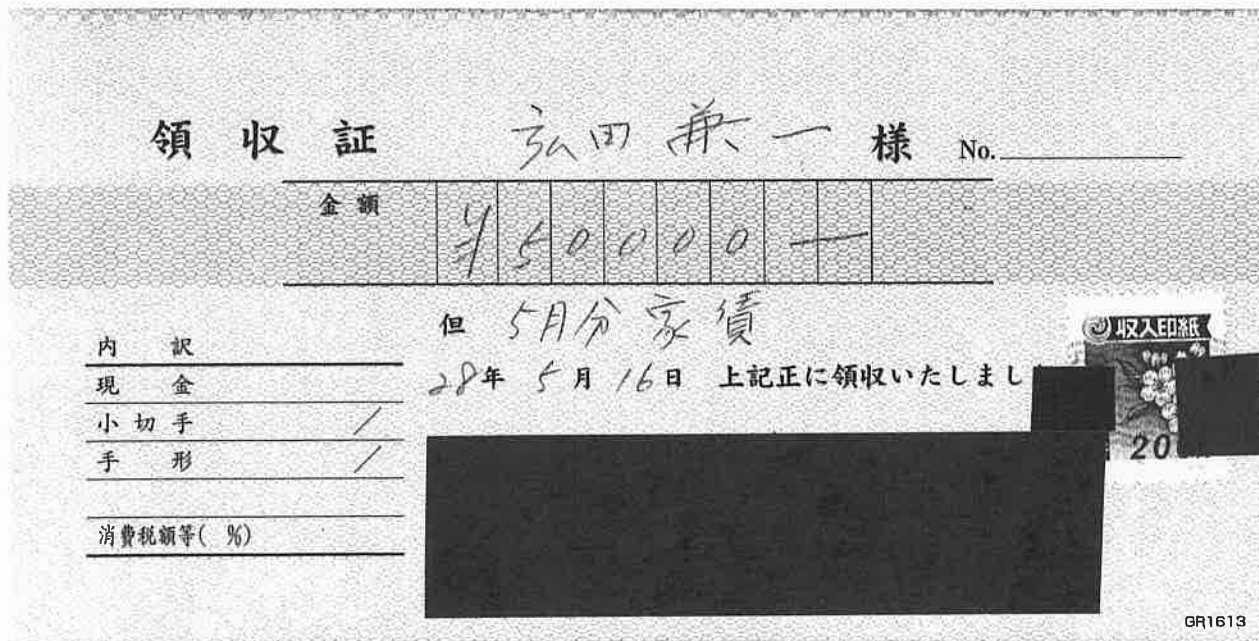 領収証 弘田兼一様 No.
金額 ¥50000―
但 5月分家賃
28年5月16日 上記正に領収いたしまし
内訳
現金
小切手 /
手形 /
消費税額等( %)
収入印紙
20
GR1613